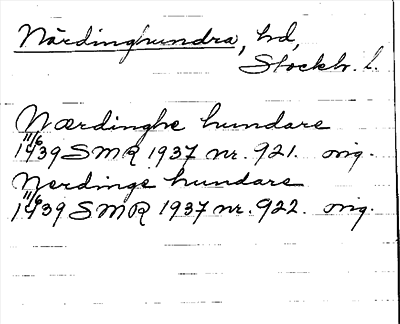 Närdinghundra, hd,
Stockh. l.
Nærdinghe hundare
11/6 1439 SMR 1937 nr. 921. orig.
Nerdinge hundare
11/6 1439 SMR 1937 nr. 922. orig.